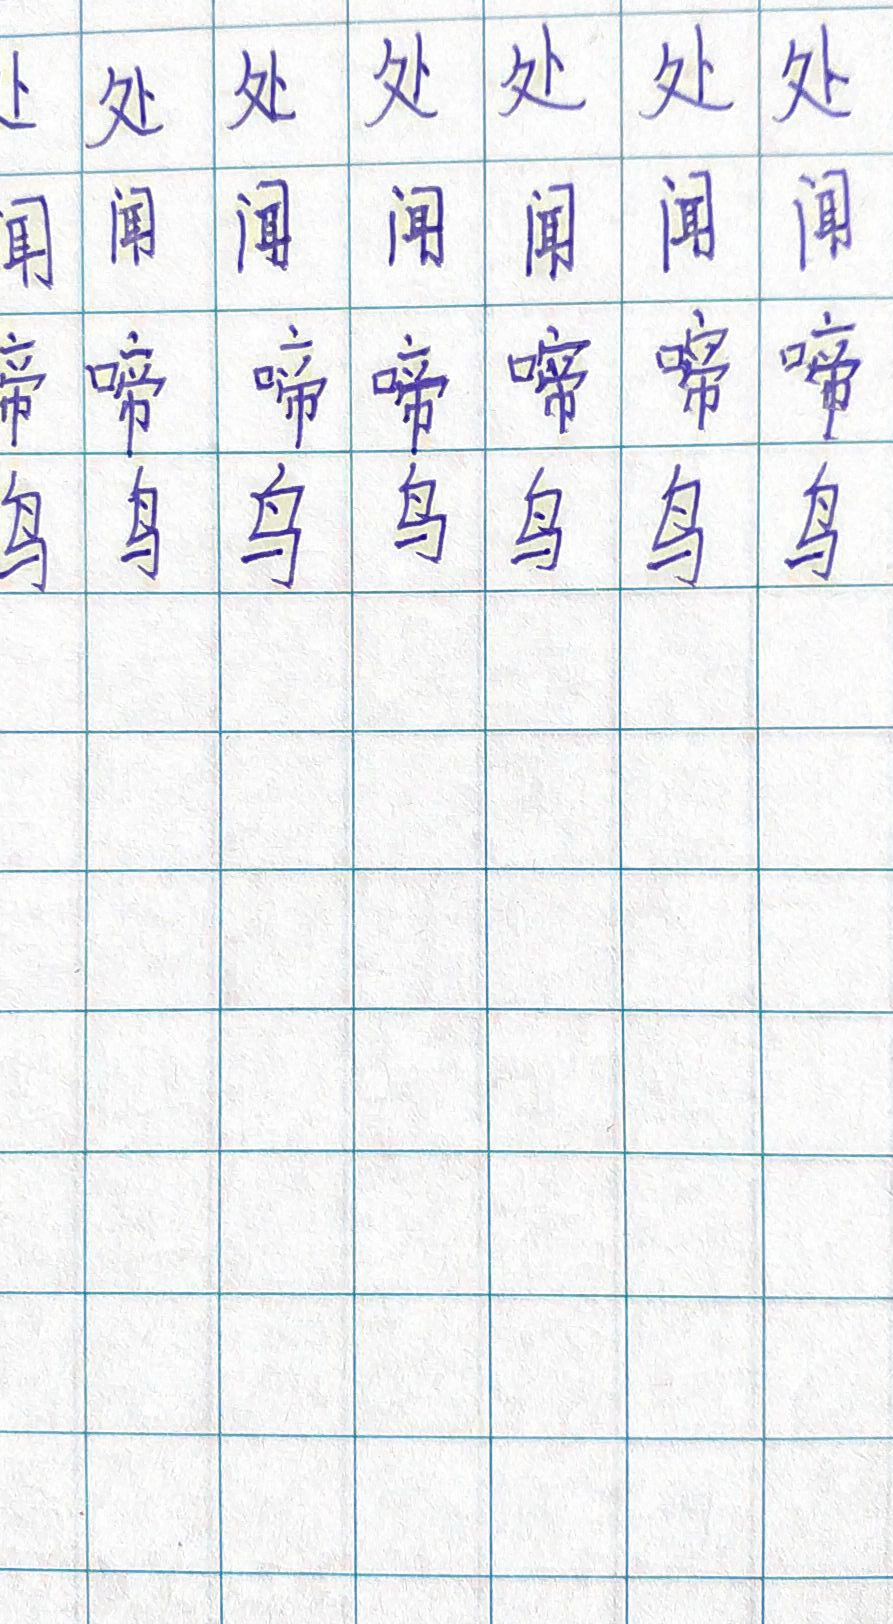 处 处 处 处 处 处 处
闻 闻 闻 闻 闻 闻 闻
啼 啼 啼 啼 啼 啼 啼
鸟 鸟 鸟 鸟 鸟 鸟 鸟